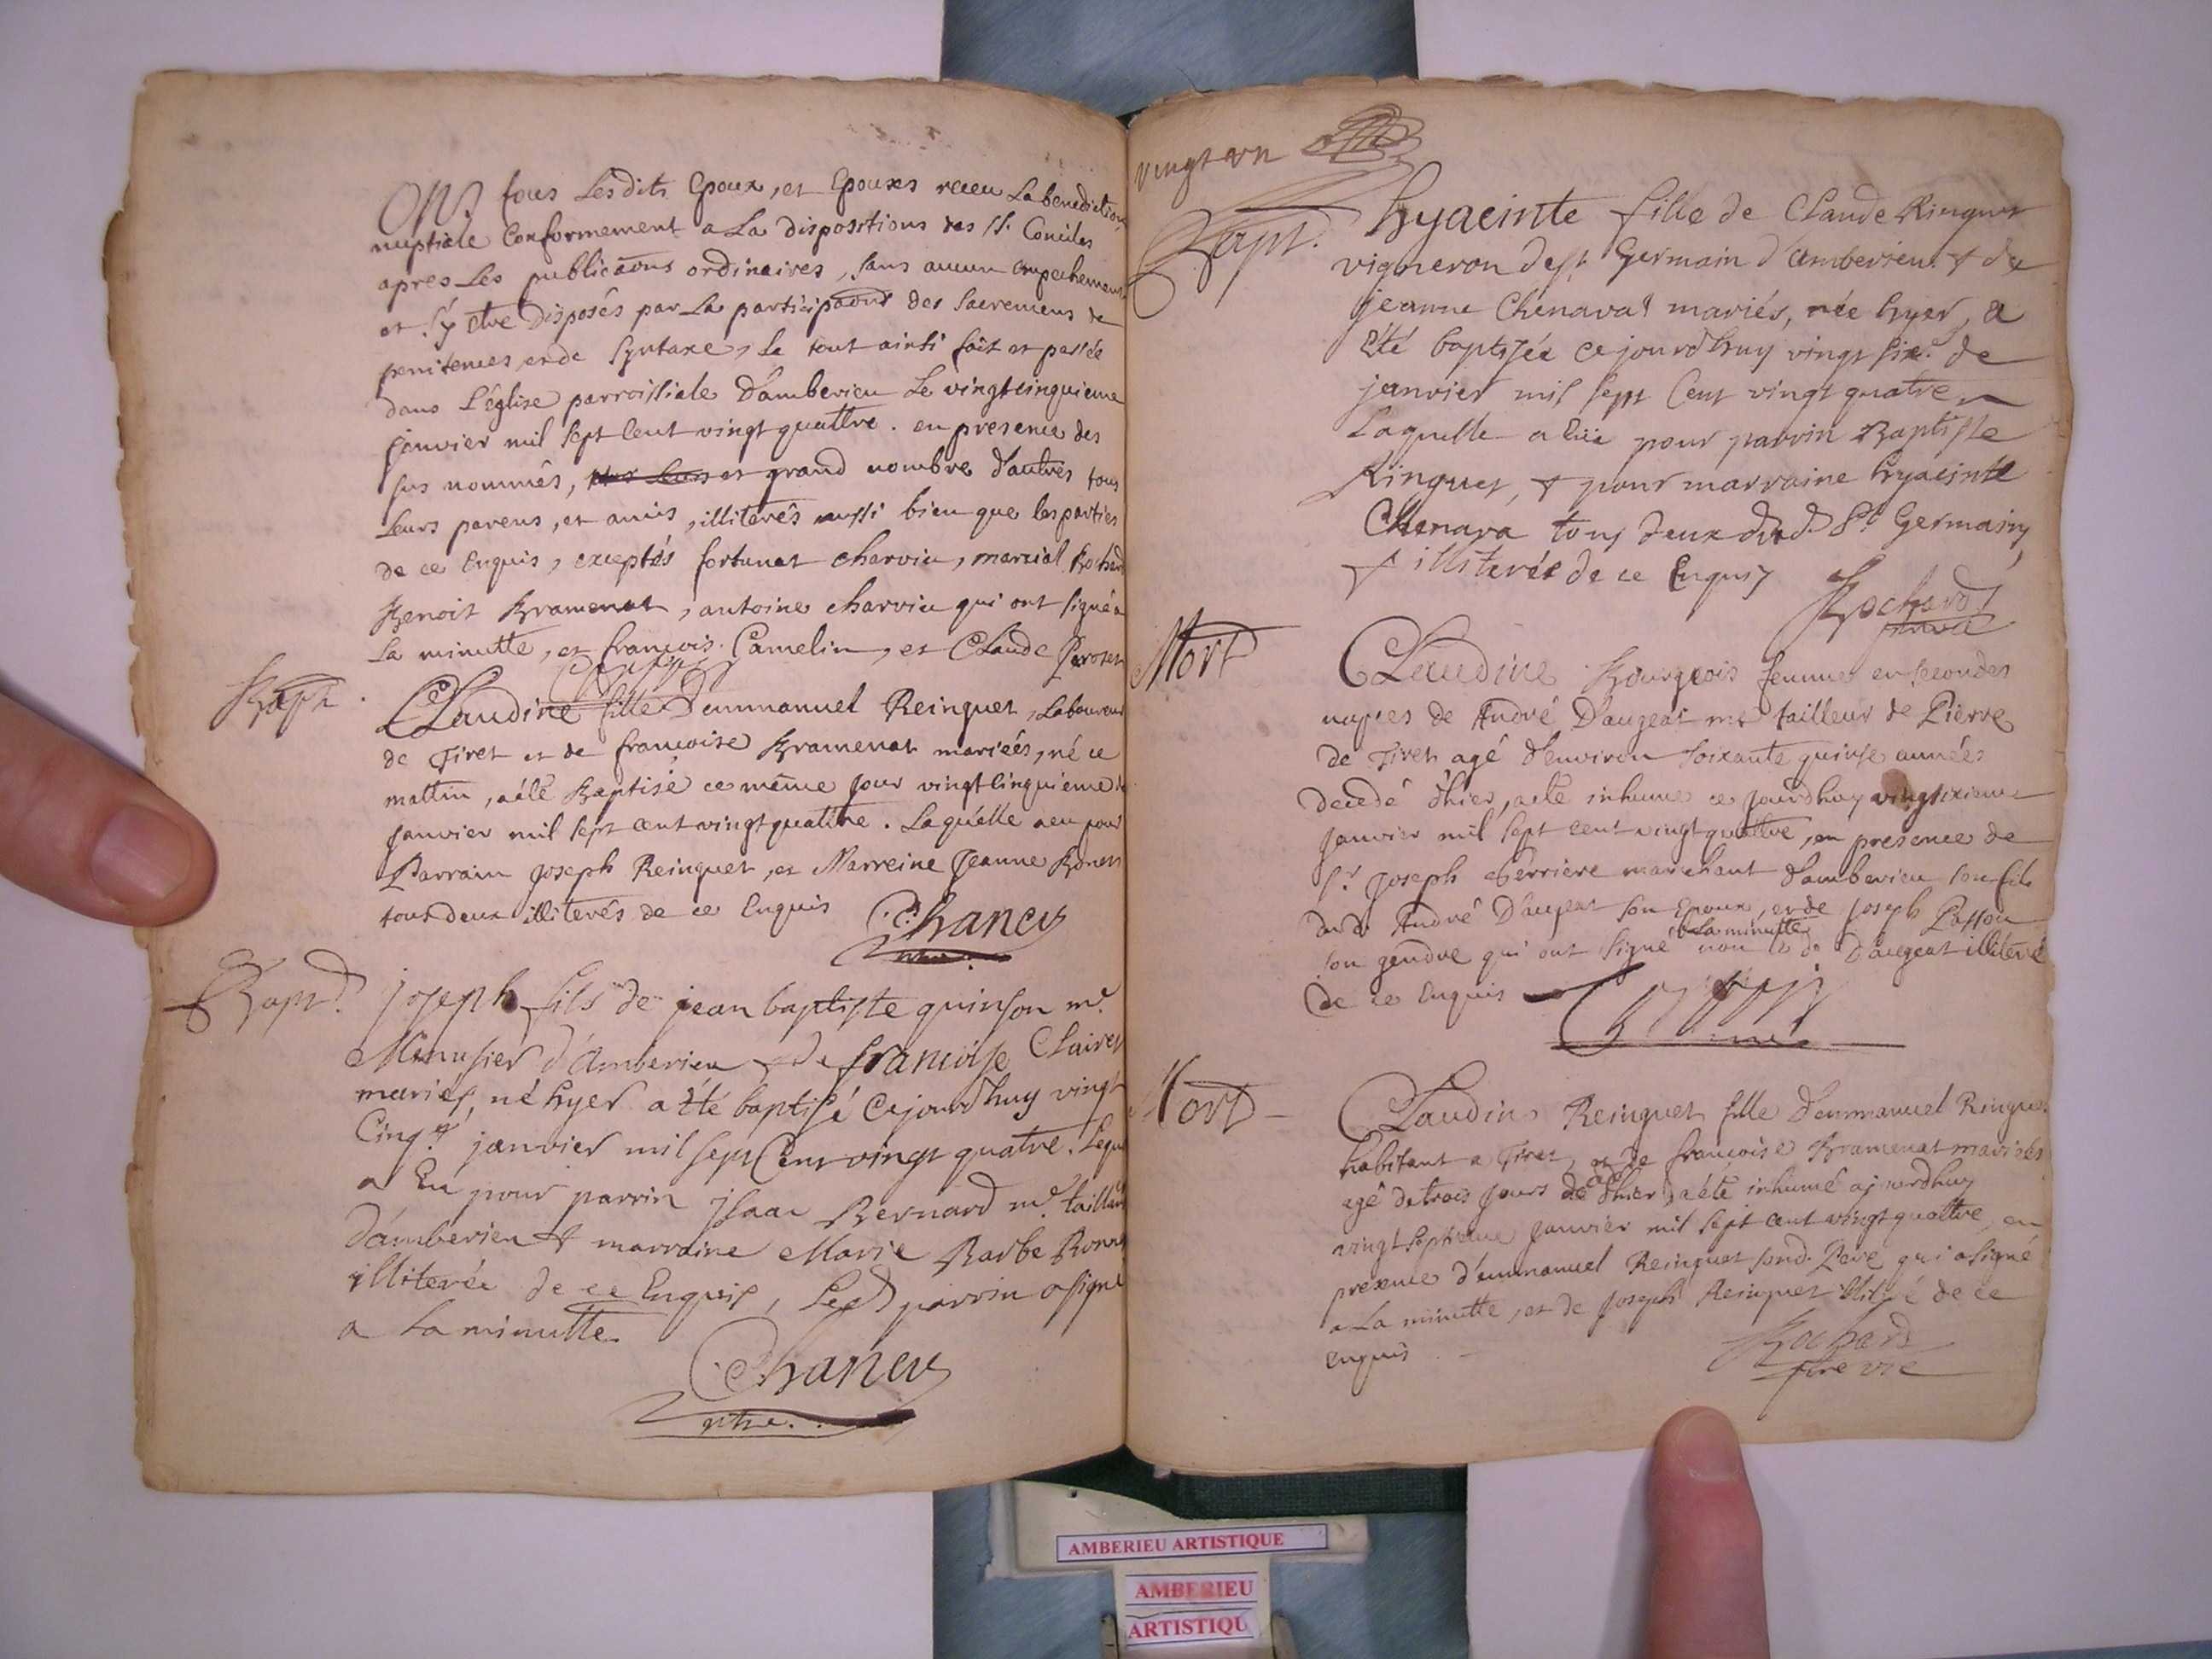 Ont tous Lesdits Epoux, et Epouses receu La benediction
nuptiale Conformement a La dispositions des SS. Conciles
apres Les publicaons ordinaires, sans aucun empechement
et s'y etre disposés par La participaons des Sacremens de
penitences, et de Syntaxe, Le tout ainsi fait et passée
dans L'église parroissiale d'amberieu Le vingtcinquieme
janvier mil sept Cent vingt quattre. en presence des
sus nommés, et grand nombre d'autres tous
Leurs parens, et amis, illiterés aussi bien que les parties
de ce Enquis, exceptés fortunat charvin, marcial Rochard
Benoit Bramenat, antoine charvin qui ont signé a
La minutte, et francois Camelin, et CLaude
Bapt.
CLaudine fille d'emmanuel Reinguet, Laboureur
de Tiret et de francoise Bramenat mariéés, né ce
mattin, a été Baptisé ce même jour vingtcinquieme
janvier mil sept cent vingt quattre. Laquélle a eu pour
Parrain joseph Reinguet, et Marreine Jeanne Bonet
tous deux illiterés de ce Enquis
Chaney
Bapt.
joseph fils de jean baptiste quinson me.
Menusier d'Amberieu & de francoise Clairet
mariés, né hyer a été baptisé Cejourdhuy vingt
Cinq.e janvier mil sept Cent vingt quatre. Lequel
a Eu pour parrin jsaac Bernard me. tailleur
d'amberieu & marraine Marie Barbe
illiterée de ce Enquis, Led parrin a signé
a La minutte.
Chaney
ptre.
vingt vn
Bapt.
hyacinte fille de Claude Ringuet
vigneron de st. Germain d'Amberieu & de
jeanne Chenavat mariés, née hyer, a
été baptisée cejourdhuy vingt six.e de
janvier mil sept Cent vingt quatre
Laquelle a Eüe pour parrin Baptiste
Ringuet, & pour marraine hyacinte
Chenava tous deux dud. St Germain,
& illiterés de ce Enquis
Rochard
Mort
CLaudine Bourgeois femme en secondes
nopces de André D'augeat me tailleur de Pierre
de Tiret agé d'environ soixante quinse années
decedé d'hier, a été inhumé ce jourdhuy vingtsixieme
janvier mil sept cent vingt quattre, en presence de
Sr. Joseph Perriere marchant d'amberieu son fils
dud. André D'augeat son Epoux, et de joseph Passou
a La minutte
son gendre qui ont signé non Le d. D'augeat illiteré
de ce Enquis
Mort
CLaudine Reinguet fille d'emmanuel Ringuet
habitant a Tiret, et de francoise Bramenat mariéés
agé de trois jours décé d'hier, a été inhumé ajourdhuy
vingtseptieme janvier mil sept cent vingt quattre, en
presence d'emmanuel Reinguet sond. Pere qui a signé
a La minutte, et de joseph Reinguet illiteré de ce
enquis
Rochard